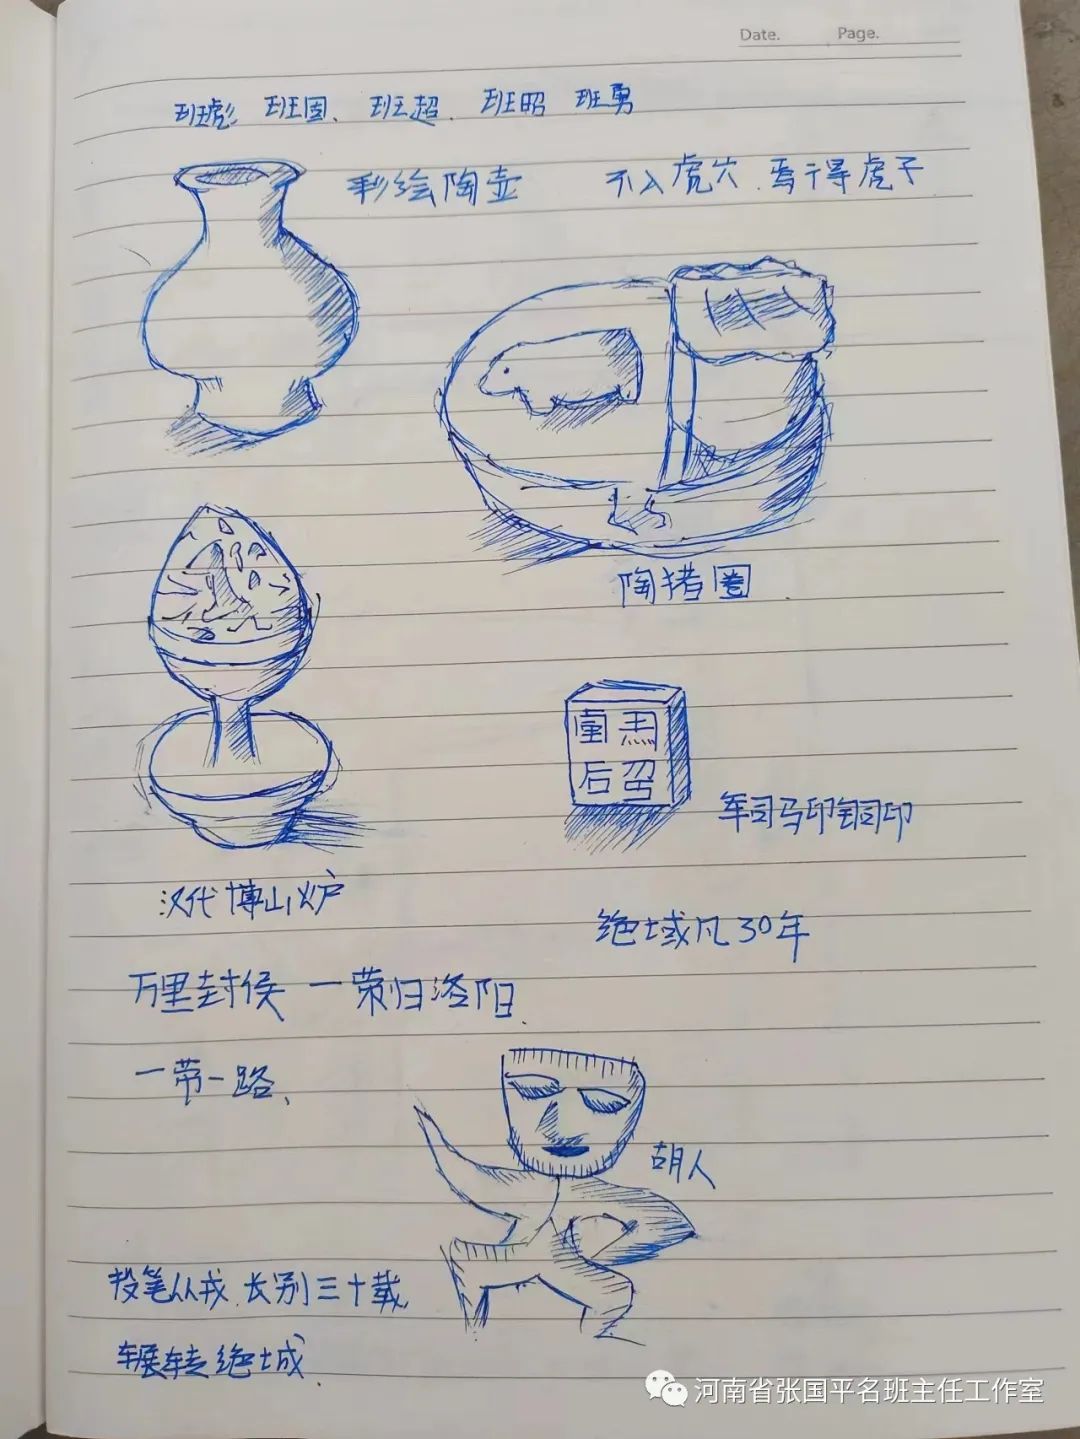 Date. Page.
班彪 班固、班超、班昭 班勇
彩绘陶壶 不入虎穴.焉得虎子
陶猪圈
军司马印铜印
汉代博山炉
绝域凡30年
万里封侯 一荣归洛阳.
一带一路、
胡人
投笔从戎.长别三十载
辗转绝域.
河南省张国平名班主任工作室